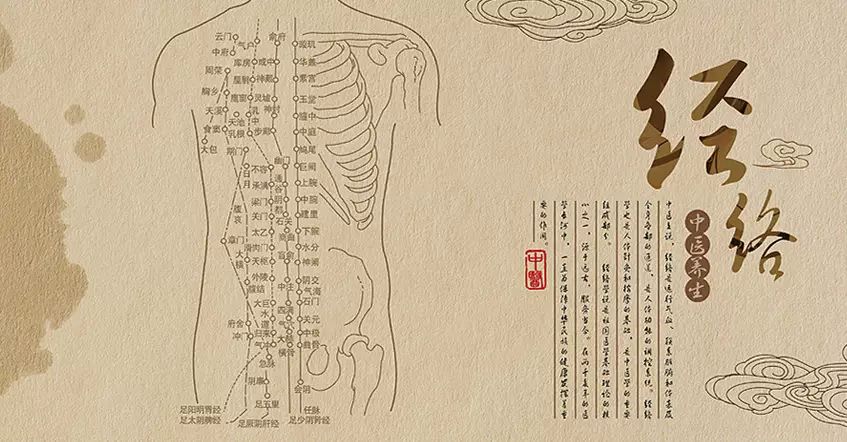 经络
中医养生
中医上说，经络是运行气血、联系脏腑和体表及
全身各部的通道，是人体功能的调控系统。经络
学也是人体针灸和按摩的基础，是中医学的重要
组成部分。 经络学说是祖国医学基础理论的核
心之一，源于远古，服务当今。在两千多年的医
学长河中，一直为保障中华民族的健康发挥着重
要的作用。
中醫
云门
中府
周荣
胸乡
天溪
食窦
大包
气户
库房
屋翳
膺窗
乳中
天池
乳根
期门
日月
腹哀
章门
大横
腹结
府舍
冲门
俞府
彧中
神藏
灵墟
神封
步廊
不容
承满
梁门
关门
太乙
滑肉门
天枢
外陵
大巨
水道
归来
气冲
急脉
阴廉
足五里
幽门
通谷
阴都
石关
商曲
肓俞
中注
四满
气穴
大赫
横骨
璇玑
华盖
紫宫
玉堂
膻中
中庭
鸠尾
巨阙
上脘
中脘
建里
下脘
水分
神阙
阴交
气海
石门
关元
中极
曲骨
会阴
足阳明胃经
足太阴脾经
足厥阴肝经
任脉
足少阴肾经